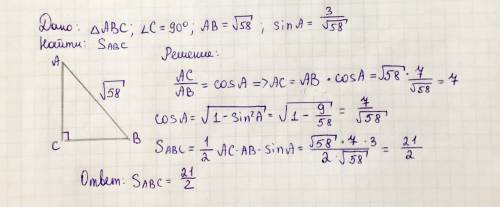 Дано: △ABC; ∠C = 90°; AB = √58; sinA = 3/√58
Найти: S_ABC
Решение:
AC/AB = cosA => AC = AB · cosA = √58 · 7/√58 = 7
cosA = √(1 - sin²A) = √(1 - 9/58) = 7/√58
S_ABC = 1/2 AC · AB · sinA = (√58 · 7 · 3)/(2 · √58) = 21/2
Ответ: S_ABC = 21/2
A
√58
C
B